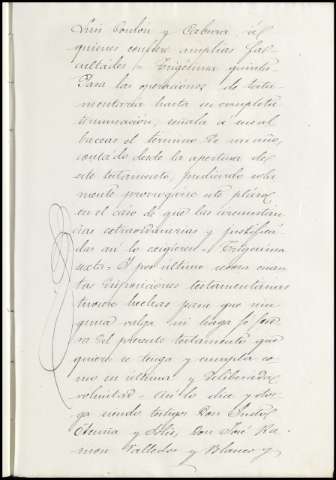 Luis Coulon y Cabrera á
quienes confiere amplias fa-
cultades.- Trigésima quinta
Para las operaciones de testa-
mentaría hasta su completa
terminación, señala á sus al-
baceas el término de un año,
contado desde la apertura de
este testamento, pudiendo sola-
mente prorrogarse este plazo,
en el caso de que las circunstan-
cias extraordinarias y justifica-
das así lo exigieren.- Trigésima
sexta.- Y por último revoca cuan-
tas disposiciones testamentarias
tuviere hechas para que nin-
guna valga ni tenga
el presente testamento que
quiere se tenga y cumpla co-
mo su última y deliberada
voluntad.- Así lo dice y otor-
ga siendo testigos Don
Acuña y Don José Ra-
mon Valledor y Blanco y